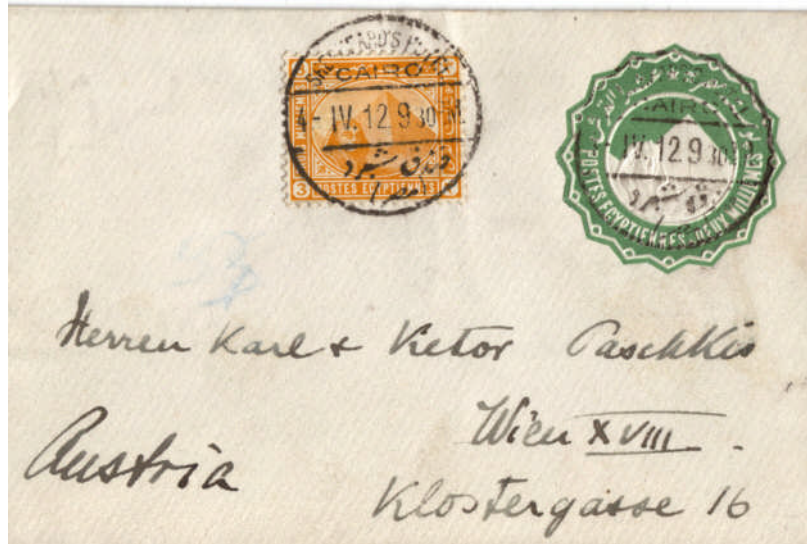 SHEPHEARD'S HOTEL
CAIRO
4- IV. 12 9 30 M.
3 POSTES EGYPTIENNES
CAIRO
- IV. 12 9 30
POSTES EGYPTIENNES. DEUX MILLIEMES
Herren Karl & Victor Paschkis
Wien XVIII.
Austria
Klostergasse 16